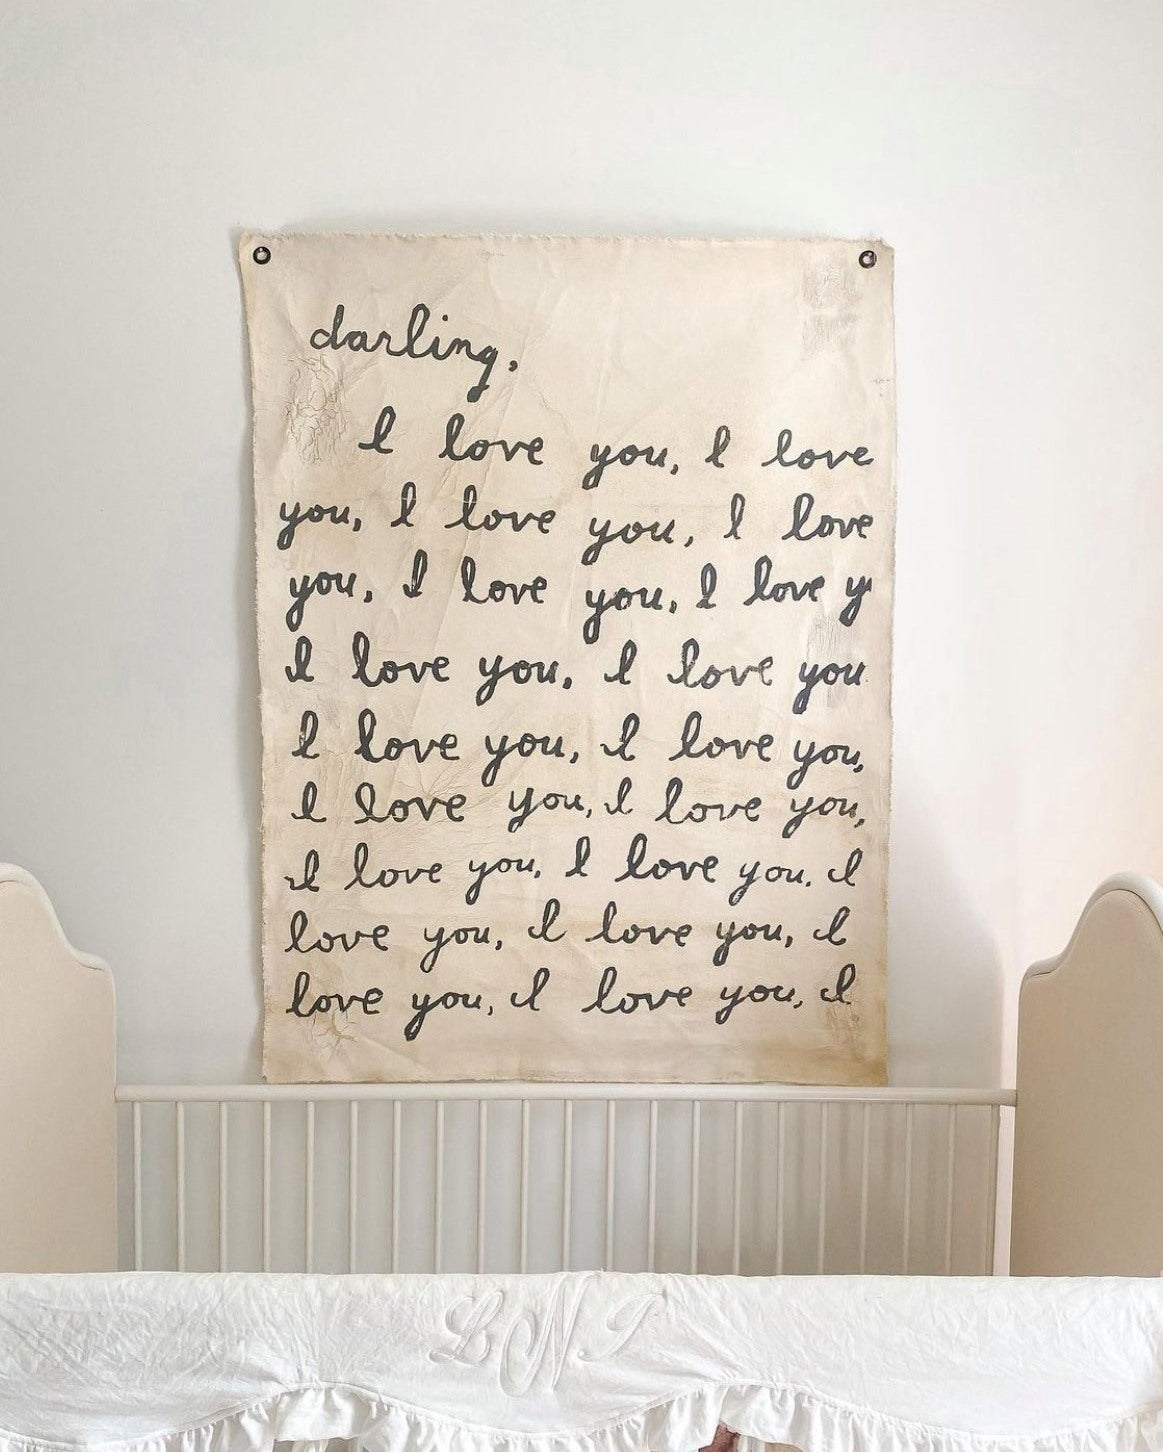 darling,
I love you, I love
you, I love you, I love
you, I love you, I love y
I love you, I love you
I love you, I love you,
I love you, I love you,
I love you, I love you, I
love you, I love you, I
love you, I love you, I